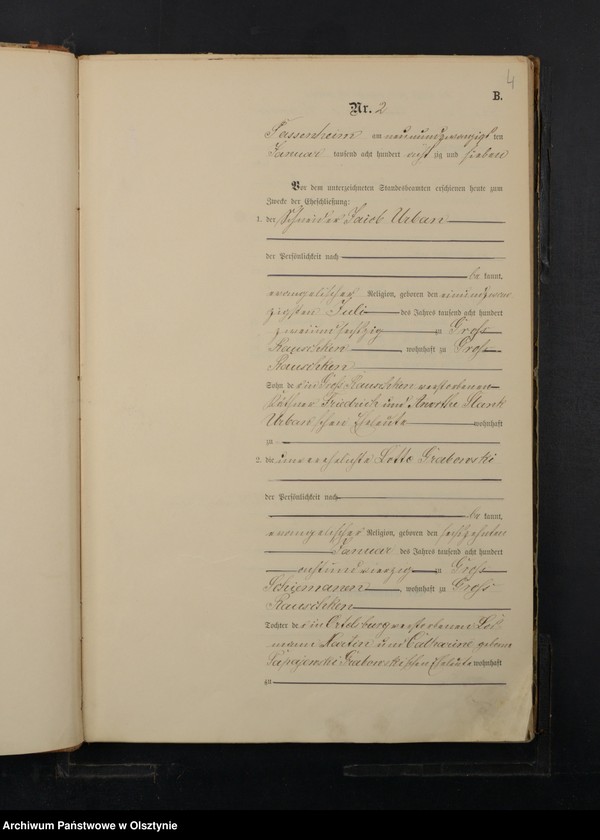 4
B.
Nr. 2
Passenheim am neunundzwanzigsten
Januar tausend acht hundert achtzig und sieben
Vor dem unterzeichneten Standesbeamten erschienen heute zum
Zwecke der Eheschließung:
1. der Schneider Jacob Urban
der Persönlichkeit nach
be kannt,
evangelischer Religion, geboren den einundzwan
zigsten Juli des Jahres tausend acht hundert
zweiundsechzig zu Groß
Rauschken, wohnhaft zu Groß
Rauschken
Sohn der in Groß Rauschken verstorbenen
Friedrich und
Urban schen Eheleute wohnhaft
zu
2. die unverehelichte Lotte Grabowski
der Persönlichkeit nach
be kannt,
evangelischer Religion, geboren den sechszehnten
Januar des Jahres tausend acht hundert
achtundvierzig zu Groß
Schiemanen, wohnhaft zu Groß
Rauschken
Tochter der in Ortelsburg verstorbenen
Martin und Catharine, geborne
Grabowski schen Eheleute wohnhaft
zu
Archiwum Państwowe w Olsztynie